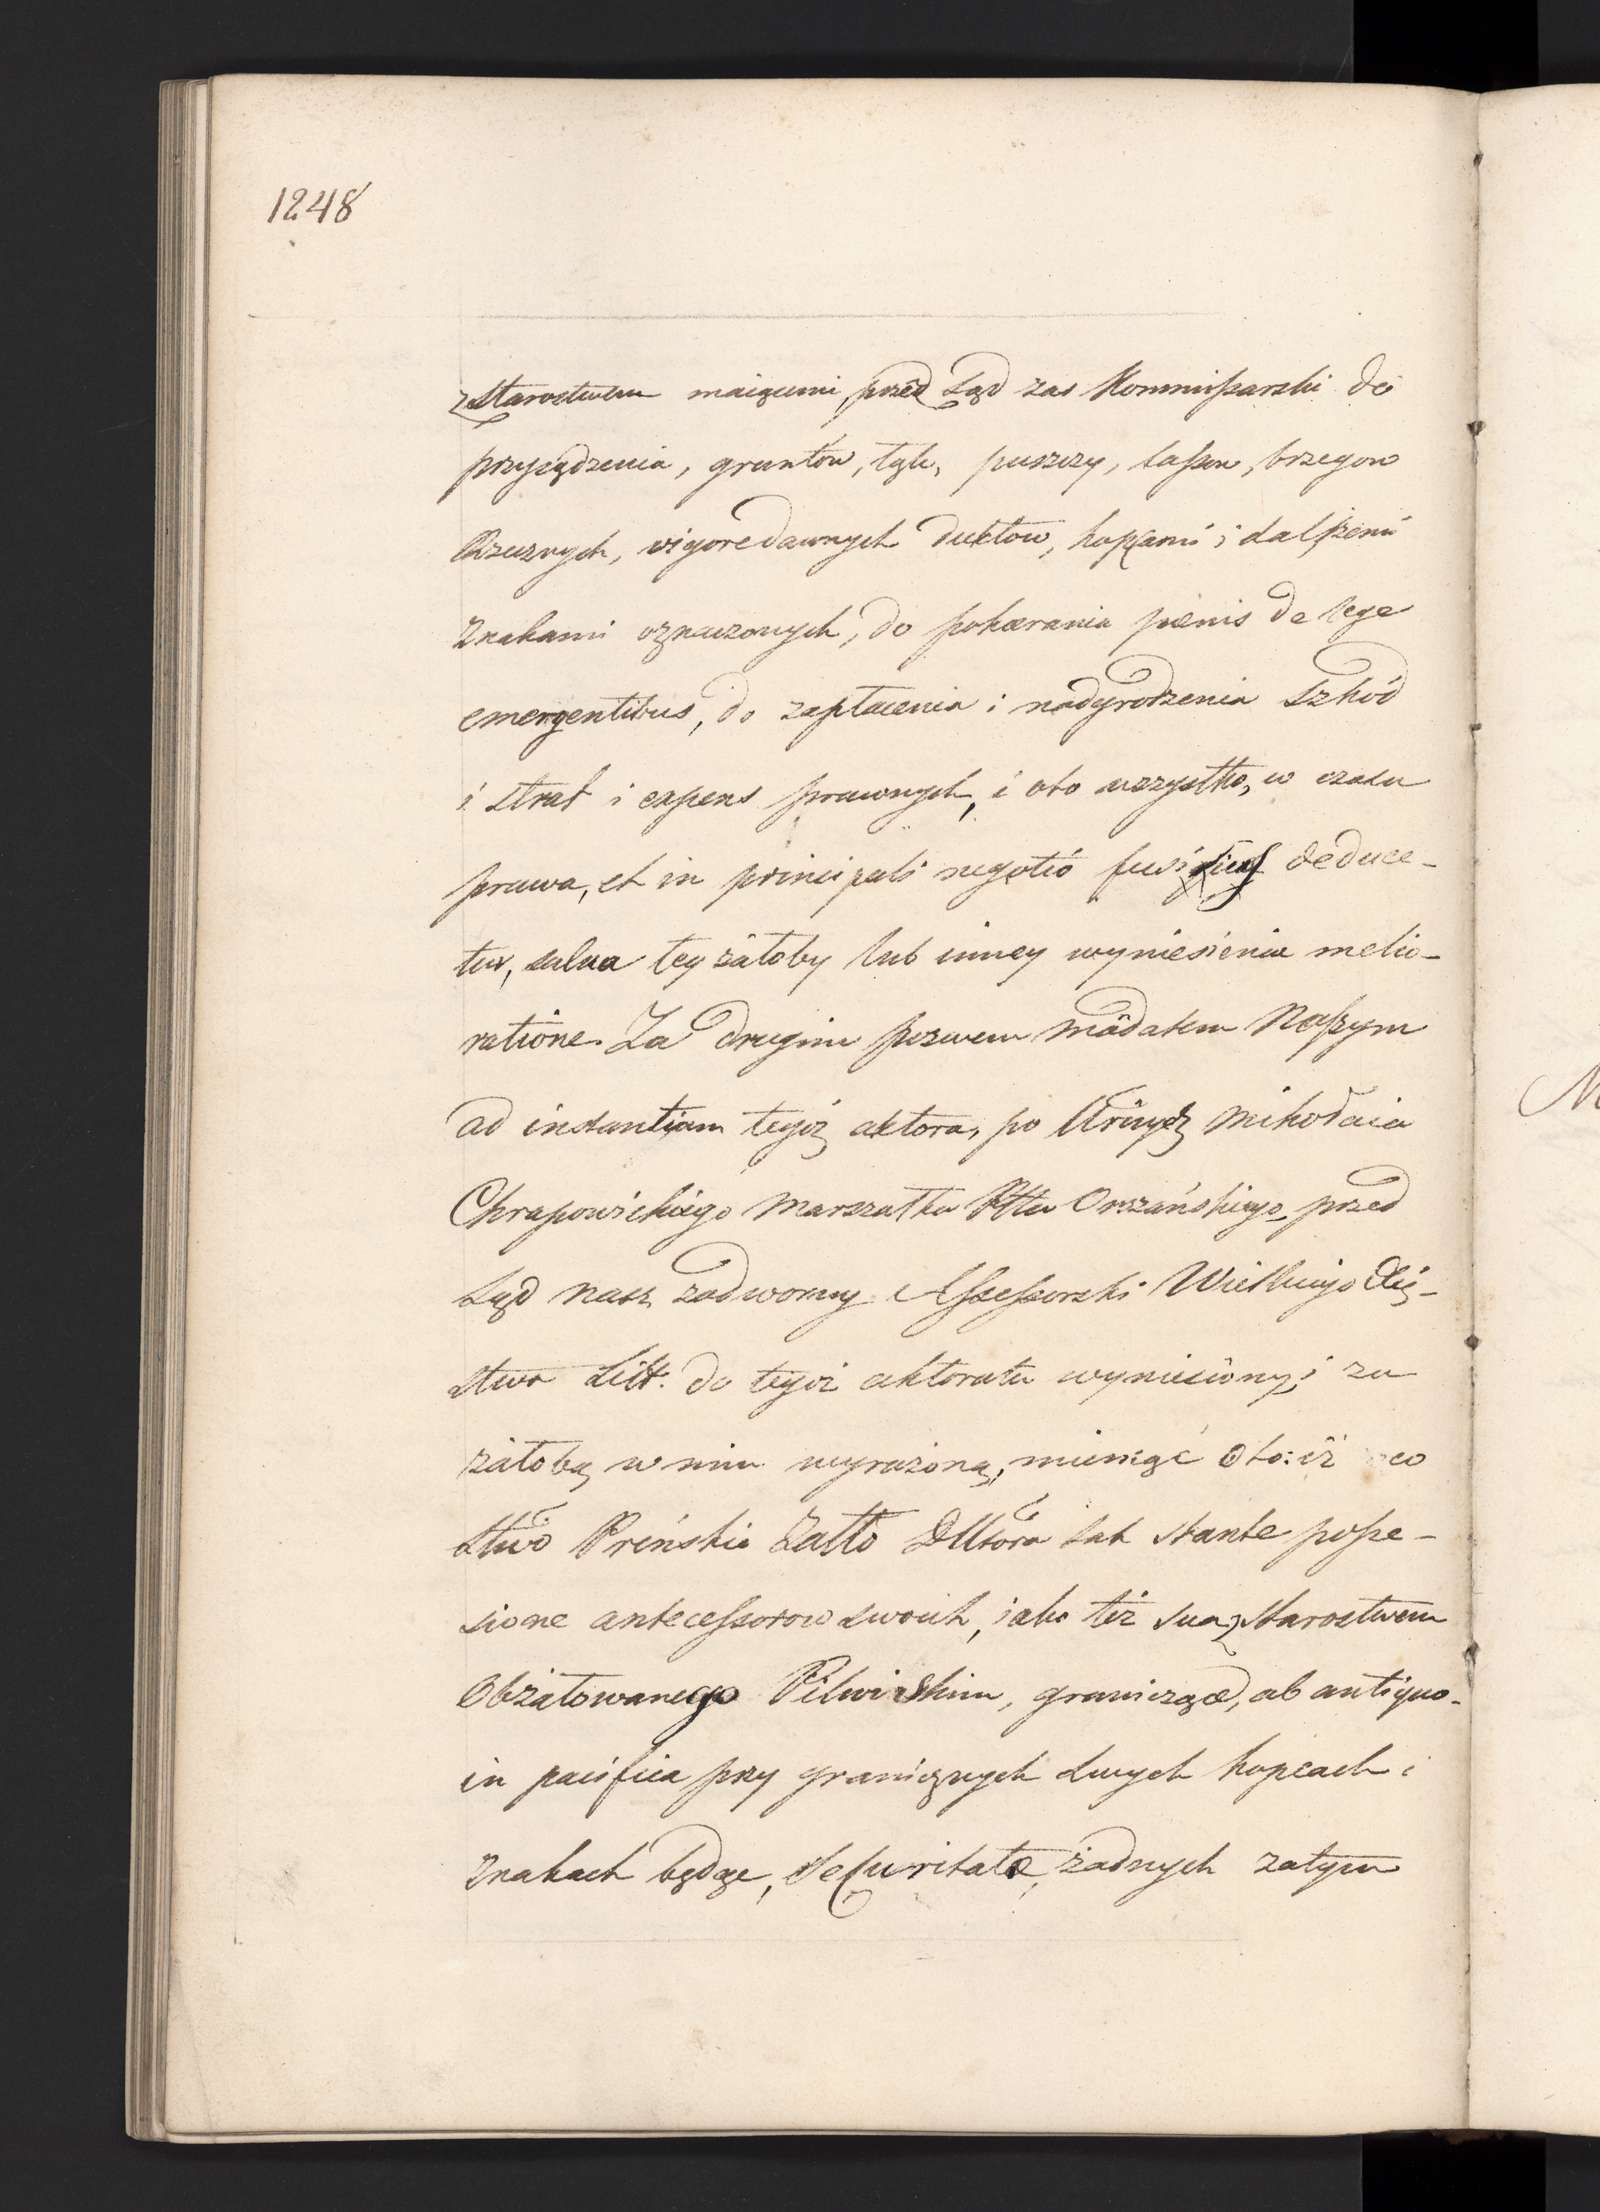 1248
z Starostwem maiącemi, przed Sąd zas Kommissarski do
przysądzenia, gruntów, łąk, puszczy, lassow, brzegow
Rzecznych, vigore dawnych duktow, kopcami i dalszemi
znakami oznaczonych, do pokarania pœnis de lege
emergentibus, do zapłacenia i nadgrodzenia szkód
i strat i expens prawnych, i oto wszystko, w czasu
prawa, et in principali negotio fusi deduce-
tur, salva tey żałoby lub inney wyniesienia melio-
ratione. Za drugim pozwem mãdatem Naszym
ad instantiam tegoż aktora, po Mikołaia
Chrapowickiego Marszałka Pttu Orszańskiego, przed
Sąd nasz zadworny Assessorski Wielkiego Xię-
stwa Litt. do tegoż aktoratu wyniesiony, i za
żałobą w nim wyrażoną, mieniąc oto: iż co
Stwo Preńskie żałło tak stante posse-
sione antecessorow swoich, jako też sua, z Starostwem
Obżałowanego Pilwiskim, granicząc, ab antiquo
in pacifica przy granicznych swych kopcach i
znakach będąc, securitate, żadnych zatym
M